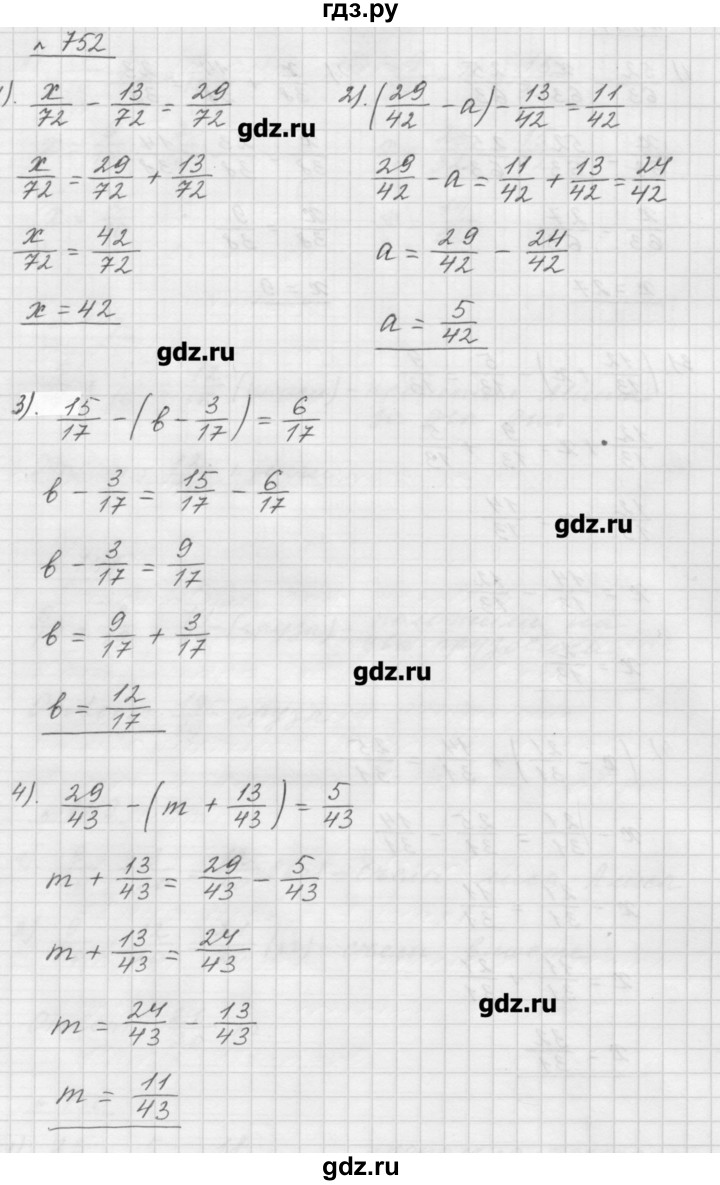 гдз.ру
№ 752
1). x/72 − 13/72 = 29/72
x/72 = 29/72 + 13/72
x/72 = 42/72
x = 42
2). (29/42 − a) − 13/42 = 11/42
29/42 − a = 11/42 + 13/42 = 24/42
a = 29/42 − 24/42
a = 5/42
3). 15/17 − (в − 3/17) = 6/17
в − 3/17 = 15/17 − 6/17
в − 3/17 = 9/17
в = 9/17 + 3/17
в = 12/17
4). 29/43 − (m + 13/43) = 5/43
m + 13/43 = 29/43 − 5/43
m + 13/43 = 24/43
m = 24/43 − 13/43
m = 11/43
gdz.ru
gdz.ru
gdz.ru
gdz.ru
gdz.ru
gdz.ru